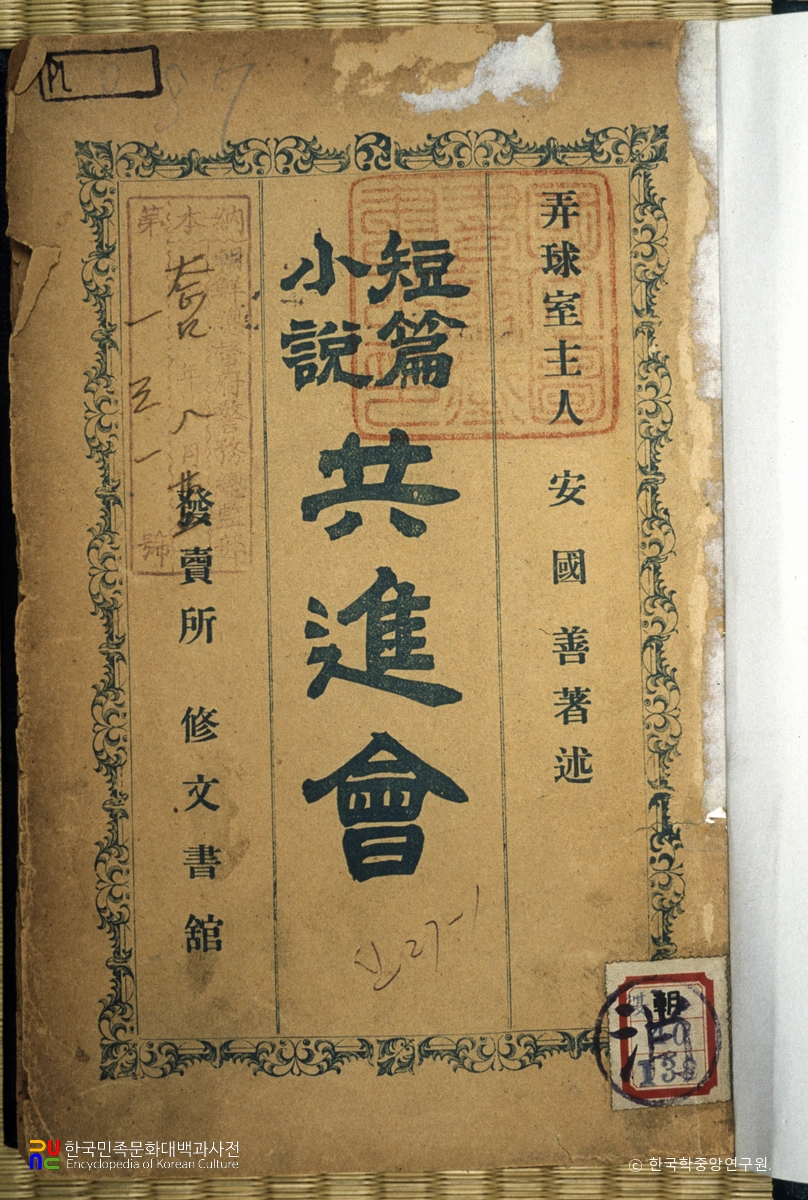 弄球室主人 安國善著述
短篇
小說
共進會
發賣所 修文書館
納
本
第
朝鮮總督府警務總監部
年八月
一三一
號
ㄴ27-1
朝
한국민족문화대백과사전
Encyclopedia of Korean Culture
© 한국학중앙연구원